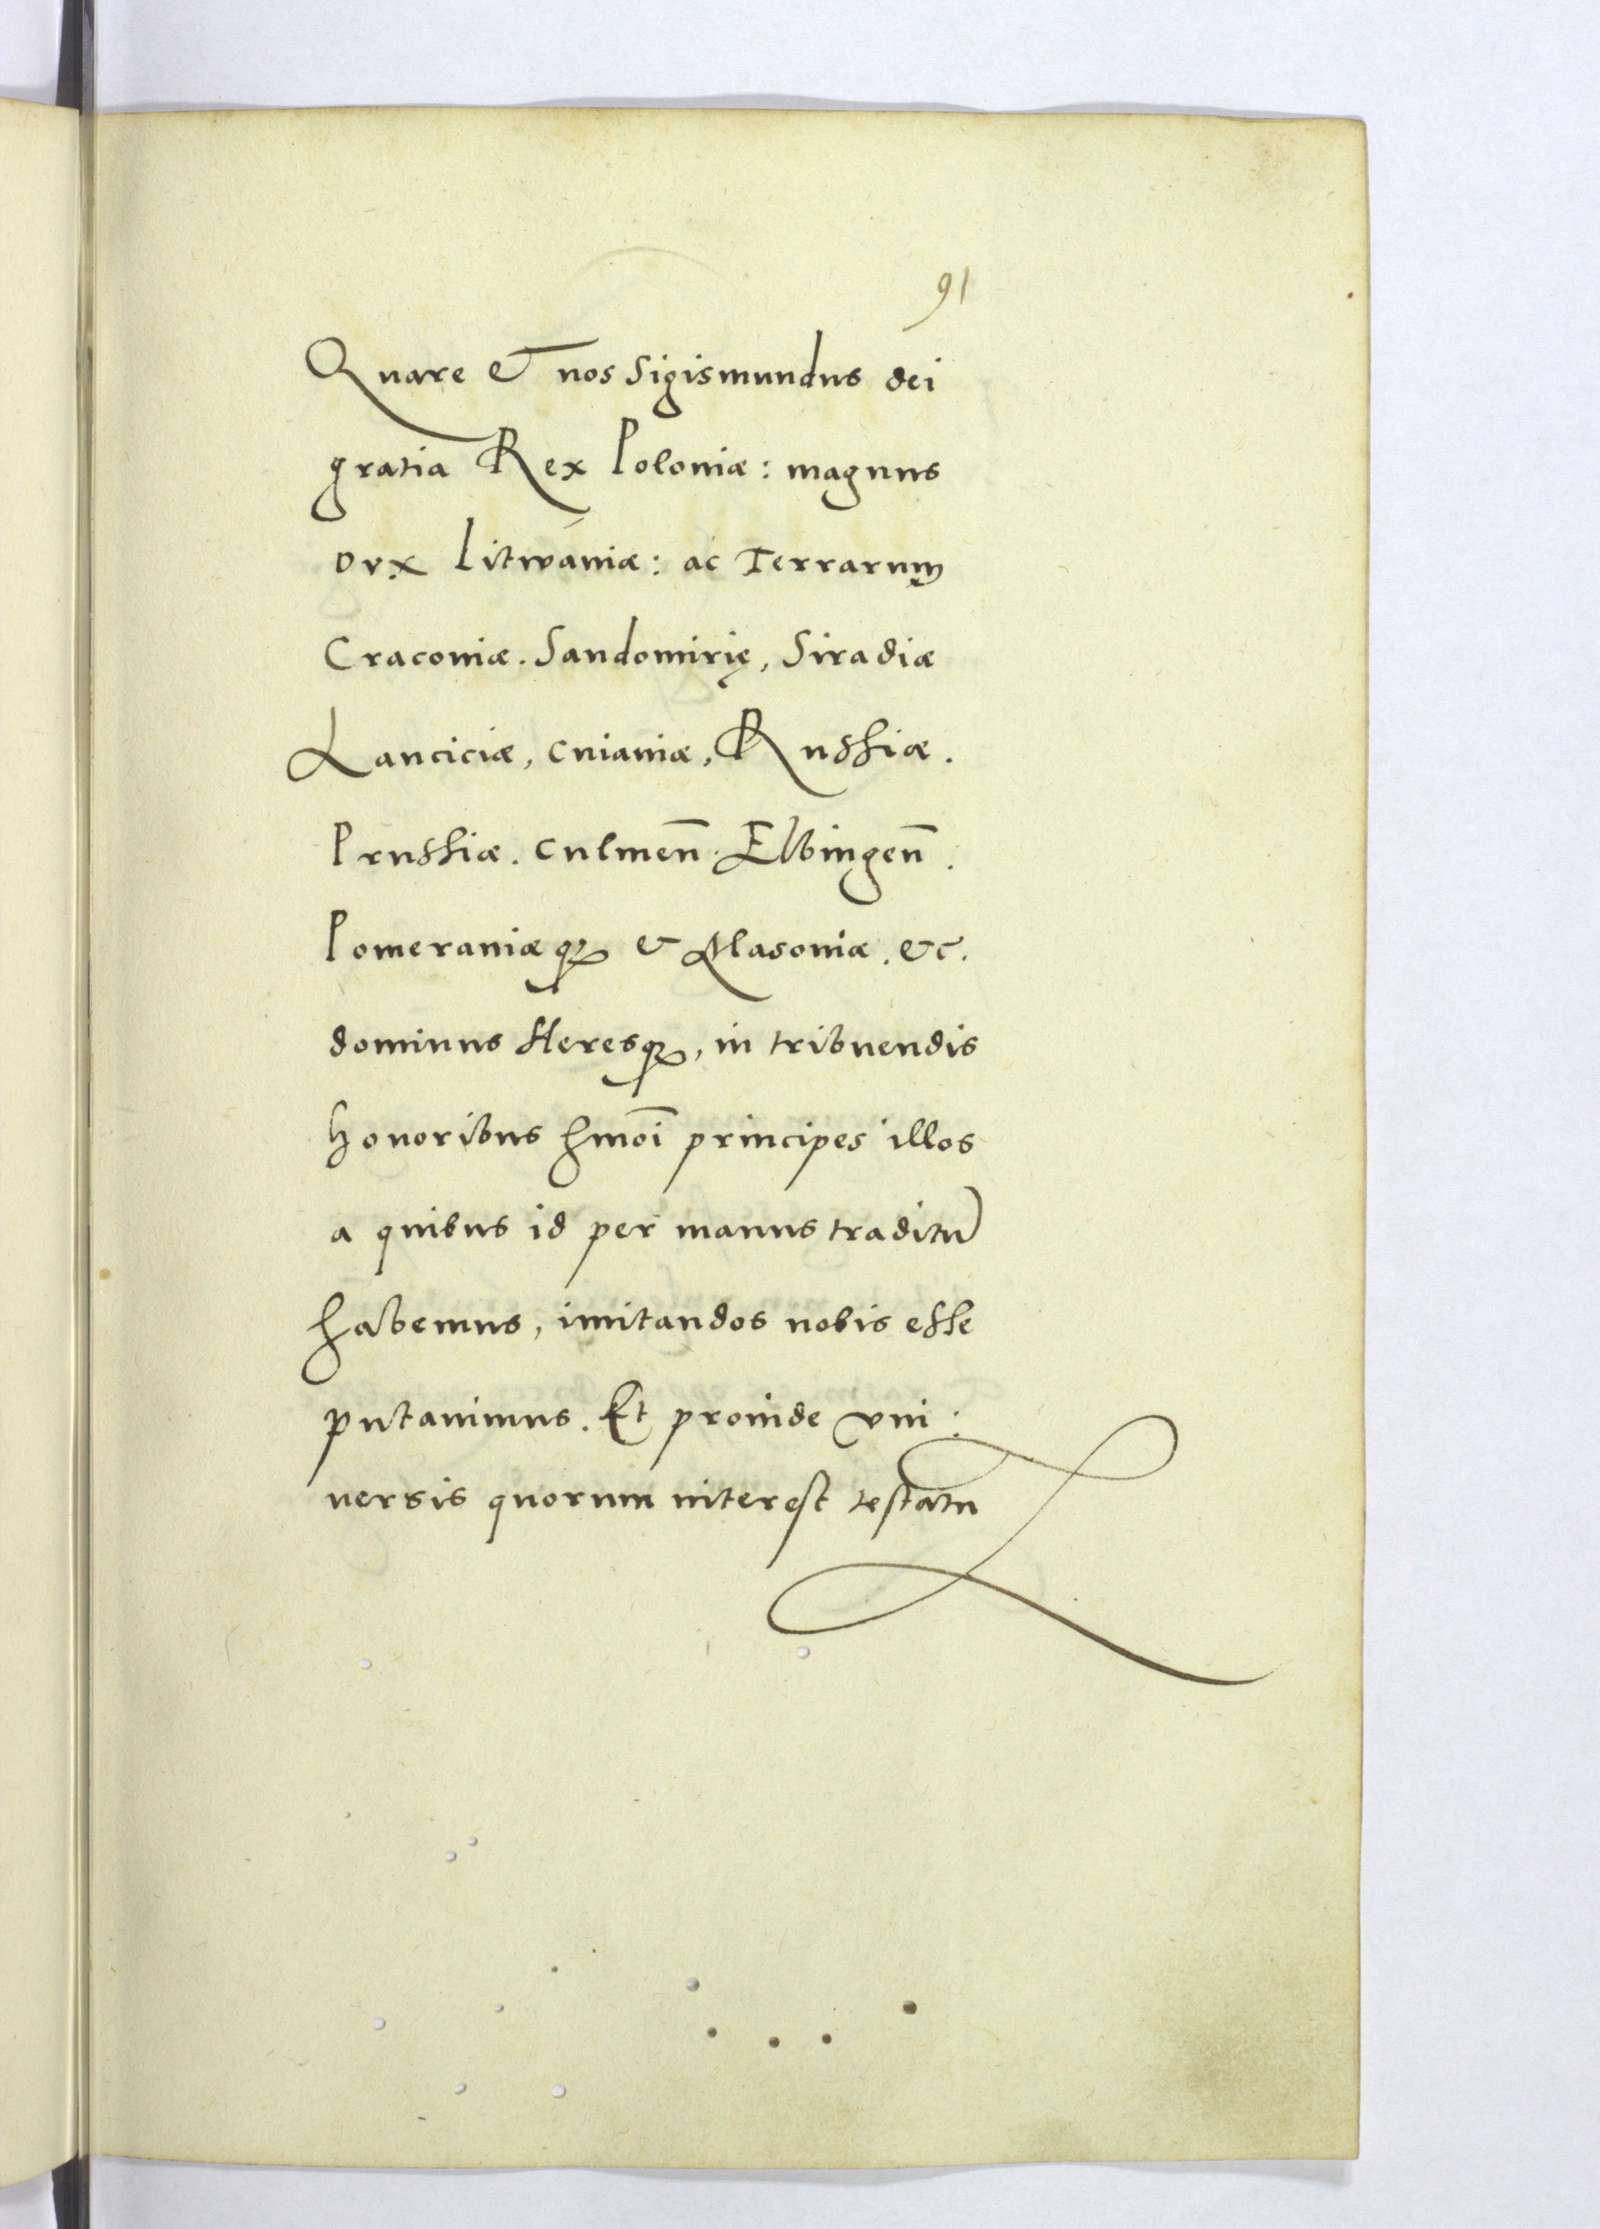 91
Quare & nos Sigismundus dei
gratia Rex Poloniæ: magnus
Dux Litwaniæ: ac Terrarum
Cracouiæ. Sandomirię, Siradiæ
Lanciciæ, Cuiauiæ, Russiæ.
Prussiæ. Culmen̄. Elbingen̄.
Pomeraniæq; & Masouiæ. &c.
dominus Heresq;, in tribuendis
honoribus hmōi principes illos
a quibus id per manus traditū
habemus, imitandos nobis esse
putauimus. Et proinde vni:
uersis quorum interest testatu